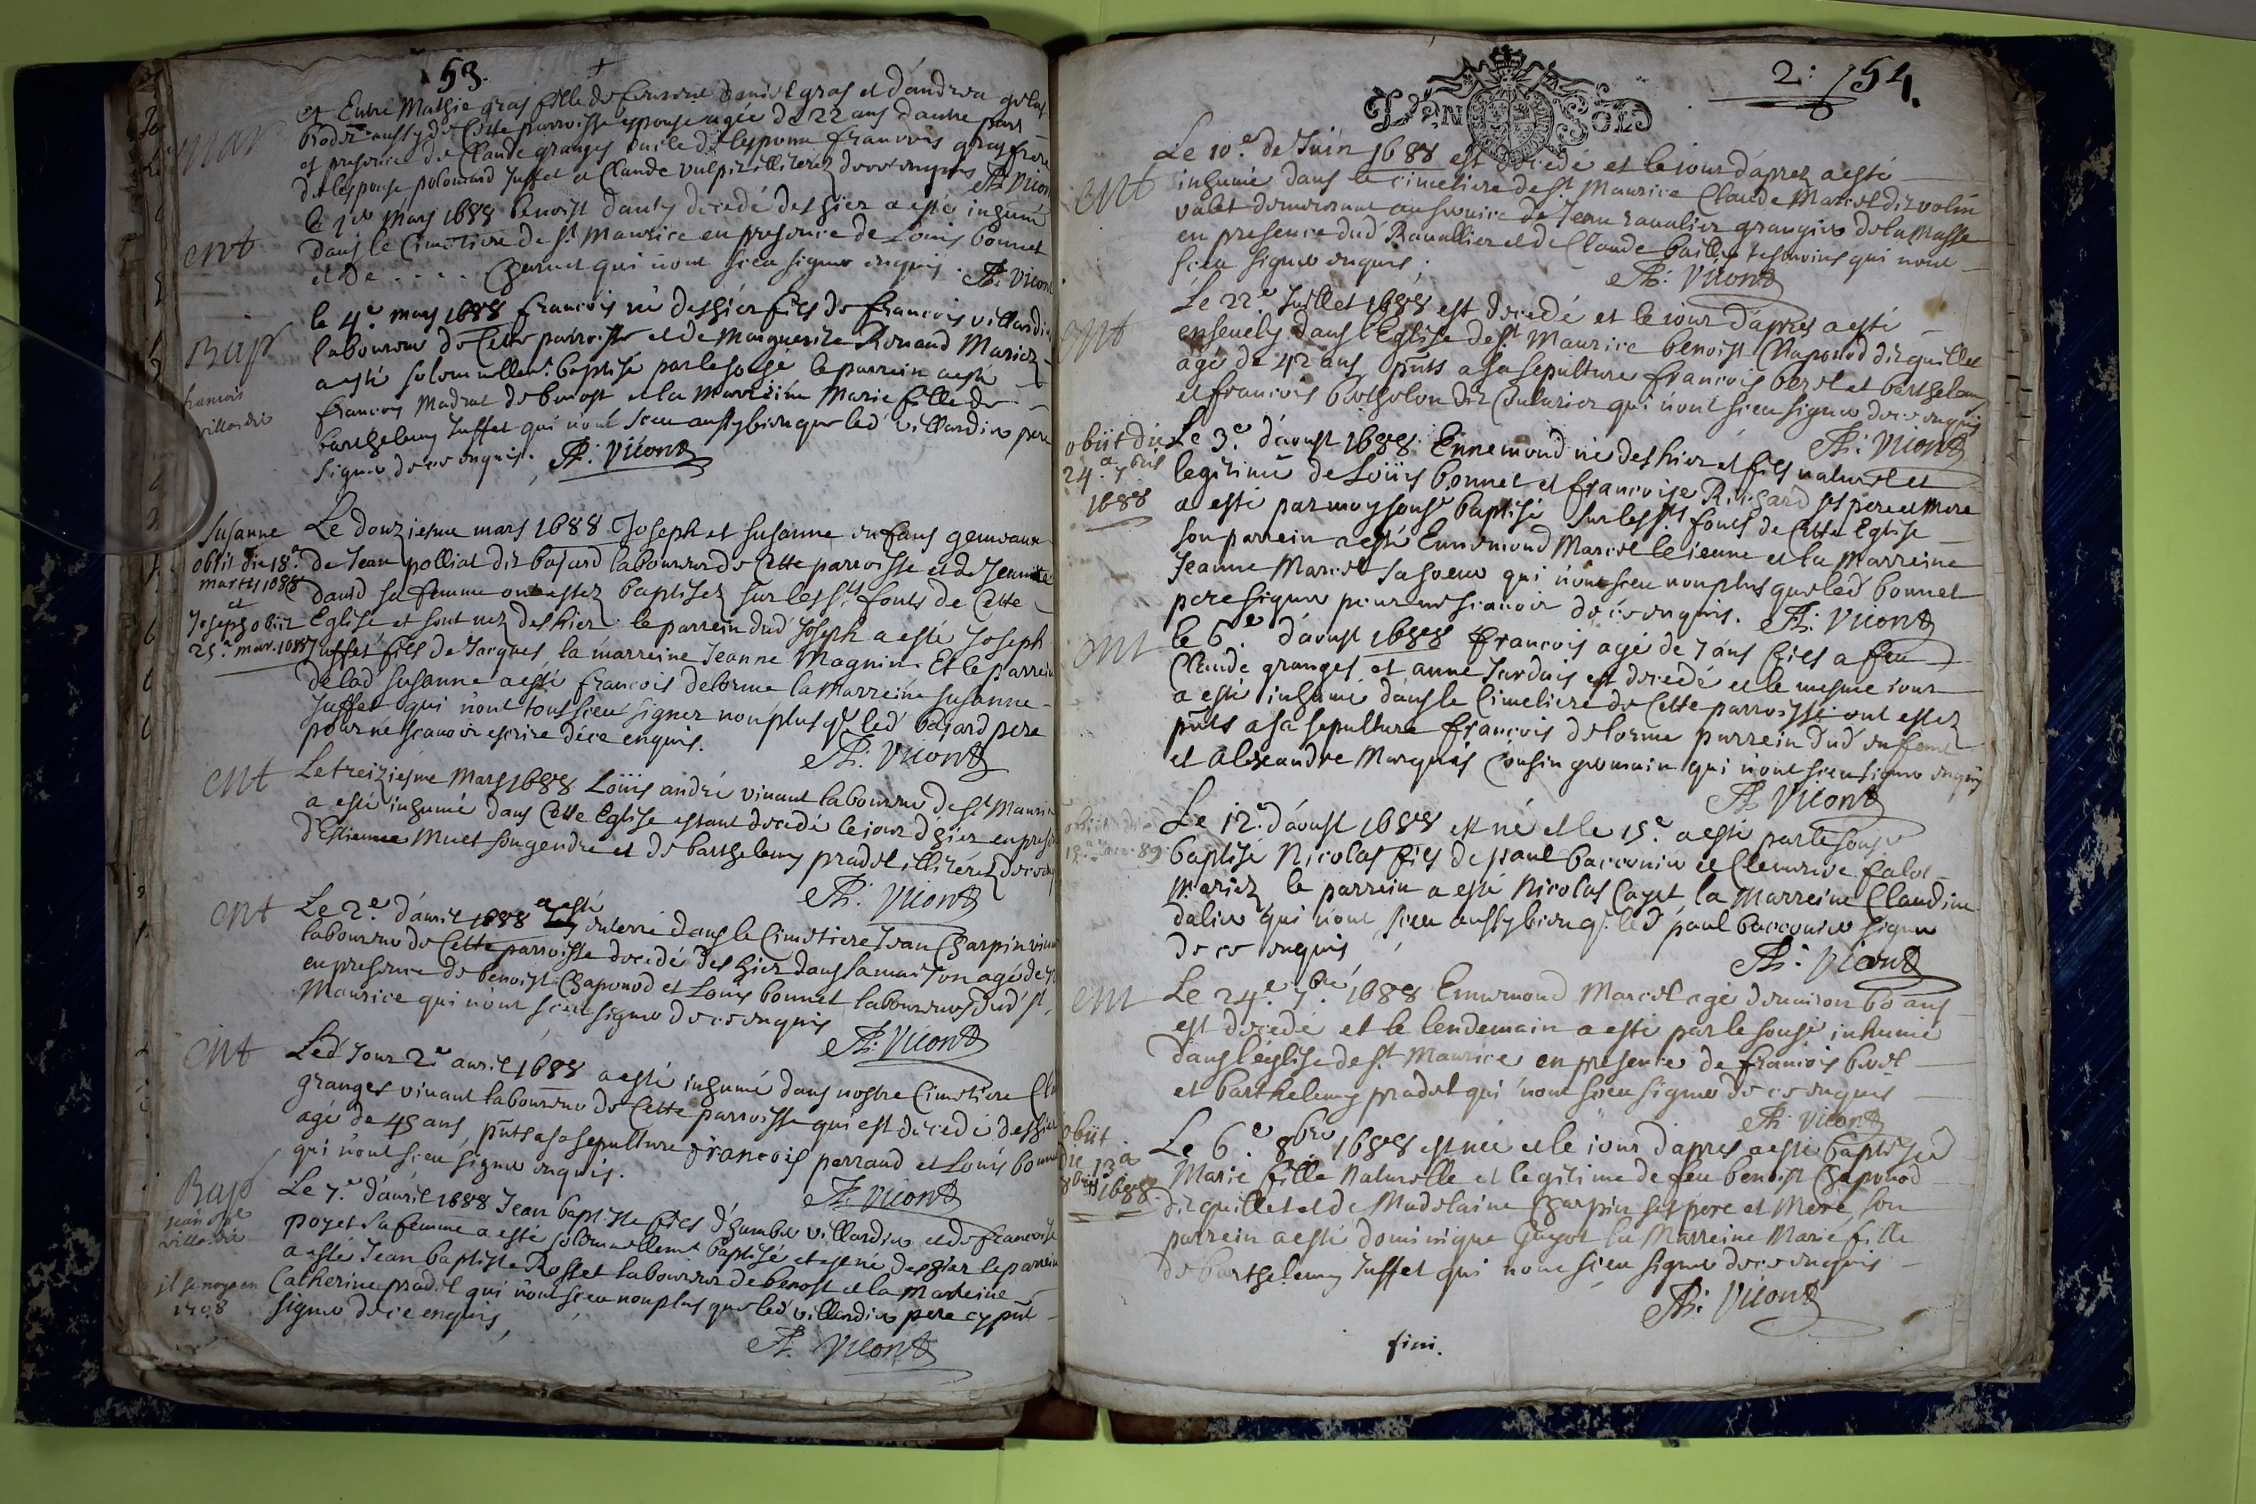 53.
Mar
et Entre Mathie gras fille de Daniel gras et d'andrea
aussy de Cette parroisse espouse agée de 22 ans d'autre part
et presence de Claude granges oncle francois gras frere
de lespouse Juffet et Claude vulpit illiterez de ce enquis Ph. Vicond
ent
le mars 1688 benoist dauly decedé des hier a esté inhumé
dans le Cimetiere de st Maurice en presence de Louis bonnet
et de . . . . . qui n'ont sceu signer enquis. Ph. Vicond
Bap
francois
villardie
le 4e mars 1688 francois né des hier fils de francois villardie
laboureur de Cette parroisse et de Marguerite Renaud Mariez
a esté solemnellemt baptisé par le sousé le parrein a esté
francois Madrat de benost et la Marreine Marie fille de
barthelemy Juffet qui n'ont sceu aussy bien que led villardie pere
signer de ce enquis. Ph. Vicond
Susanne
obiit die 18a
martij 1688
et
Joseph obiit
25a mar. 1688
Le douziesme mars 1688 Joseph et Susanne enfans gemeaux
de Jean polliat dit bajard laboureur de Cette parroisse et de Jeanne
david sa femme ont estez baptisez sur les sts fonts de Cette
Eglise et sont nez des hier. le parrein dud Joseph a esté Joseph
Juffet fils de Jacques, la marreine Jeanne Magnin. Et le parrein
de lad Susanne a esté francois delorme la Marreine Susanne
Juffet qui n'ont tous sceu signer non plus q led bajard pere
pour ne scavoir escrire de ce enquis. Ph. Vicond
ent
Le treiziesme Mars 1688 Louis andré vivant laboureur de st Maurice
a esté inhumé dans Cette Eglise estant decedé le jour d'hier en presence
d'Estienne Muet son gendre et de barthelemy pradel illiterez de ce enquis
Ph. Vicond
ent
Le 2e d'avril 1688 a esté enterré dans le Cimetiere Jean Charpin vivant
laboureur de Cette parroisse decedé des hier dans sa maison agé de
en presence de benoist Chaponod et Louis bonnet laboureurs dud st
Maurice qui n'ont sceu signer de ce enquis Ph. Vicond
ent
Led Jour 2e avril 1688 a esté inhumé dans nostre Cimetiere
granges vivant laboureur de Cette parroisse qui est decedé des hier
agé de 45 ans, pnts a sa sepulture francois perraud et Louis bonnet
qui n'ont sceu signer enquis. Ph. Vicond
Bap
Jean bte
villardie
il se noya en
1708
Le 7e d'avril 1688 Jean baptiste fils d'humbert villardie et de francoise
poyet sa femme a esté solemnellemt baptisé et est né des hier le parrein
a esté Jean baptiste Rosset laboureur de benost et la Marreine
Catherine pradel qui n'ont sceu non plus que led villardie pere cy pnt
signer de ce enquis, Ph. Vicond
2: 54.
LION 2 SOLD
ent
Le 10e de Juin 1688 est decedé et le jour d'apres a esté
inhumé dans le cimetiere de st Maurice Claude Marcel dit volin
valet demeurant au service de Jean ravalier granger de la Masse
en presence dud Ravallier et de Claude baille tesmoins qui n'ont
sceu signer enquis. Ph. Vicond
ent
Le 22e Juillet 1688 est decedé et le jour d'apres a esté
ensevely dans l'Eglise de st Maurice benoist Chaponod dit guillet
agé de 42 ans, pnts a sa sepulture francois beret et barthelemy
et francois Berthelon dit Couturier qui n'ont sceu signer de ce enquis
Ph. Vicond
obiit die
24a 7bris
1688
Le 3e d'aoust 1688 Ennemond né des hier et fils naturel et
legitime de Louis bonnet et francoise Richard ses pere et mere
a esté par moy sousé baptisé sur les sts fonts de Cette Eglise
son parrein a esté Ennemond Marcel le jeune et la Marreine
Jeanne Marcel sa soeur qui n'ont sceu non plus que led bonnet
pere signer pour ne scavoir de ce enquis. Ph. Vicond
ent
le 6e d'aoust 1688 francois agé de 7 ans fils a feu
Claude granges et anne Jardais est decedé et le mesme jour
a esté inhumé dans le Cimetiere de Cette parroisse ont estez
pnts a sa sepulture francois delorme parrein dud enfant
et alexandre Marquis Cousin germain qui n'ont sceu signer enquis
Ph. Vicond
obiit die
89.
Le 12e d'aoust 1688 est né et le 15e a esté par le sousé
baptisé Nicolas fils de paul bacconin et Clemence falot
Mariez le parrein a esté Nicolas Cayet, la Marreine Claudine
dalin qui n'ont sceu aussy bien q led paul bacconin signer
de ce enquis Ph. Vicond
ent
Le 24e 7bre 1688 Ennemond Marcel agé denviron 60 ans
est decedé et le lendemain a esté par le sousé inhumé
dans l'église de st Maurice en presence de francois beret
et barthelemy pradel qui n'ont sceu signer de ce enquis
Ph. Vicond
obiit
die 13a
8bris 1688
Le 6e 8bre 1688 est née et le jour dapres a esté baptisée
Marie fille Naturelle et legitime de feu benoist Chaponod
dit guillet et de Madelaine Charpin ses pere et Mere, son
parrein a esté dominique Guyot la Marreine Marie fille
de barthelemy Juffet qui n'ont sceu signer de ce enquis
Ph. Vicond
fini.